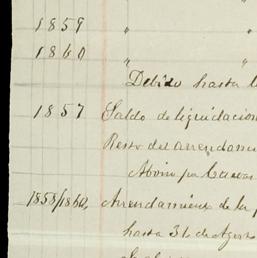 1859 " "
1860 " "
Debido hasta
1857 Saldo de liquidacion
Resto del arrendami
Abono por
1858/1860, Arrendamiento de la
hasta 31 de Agosto